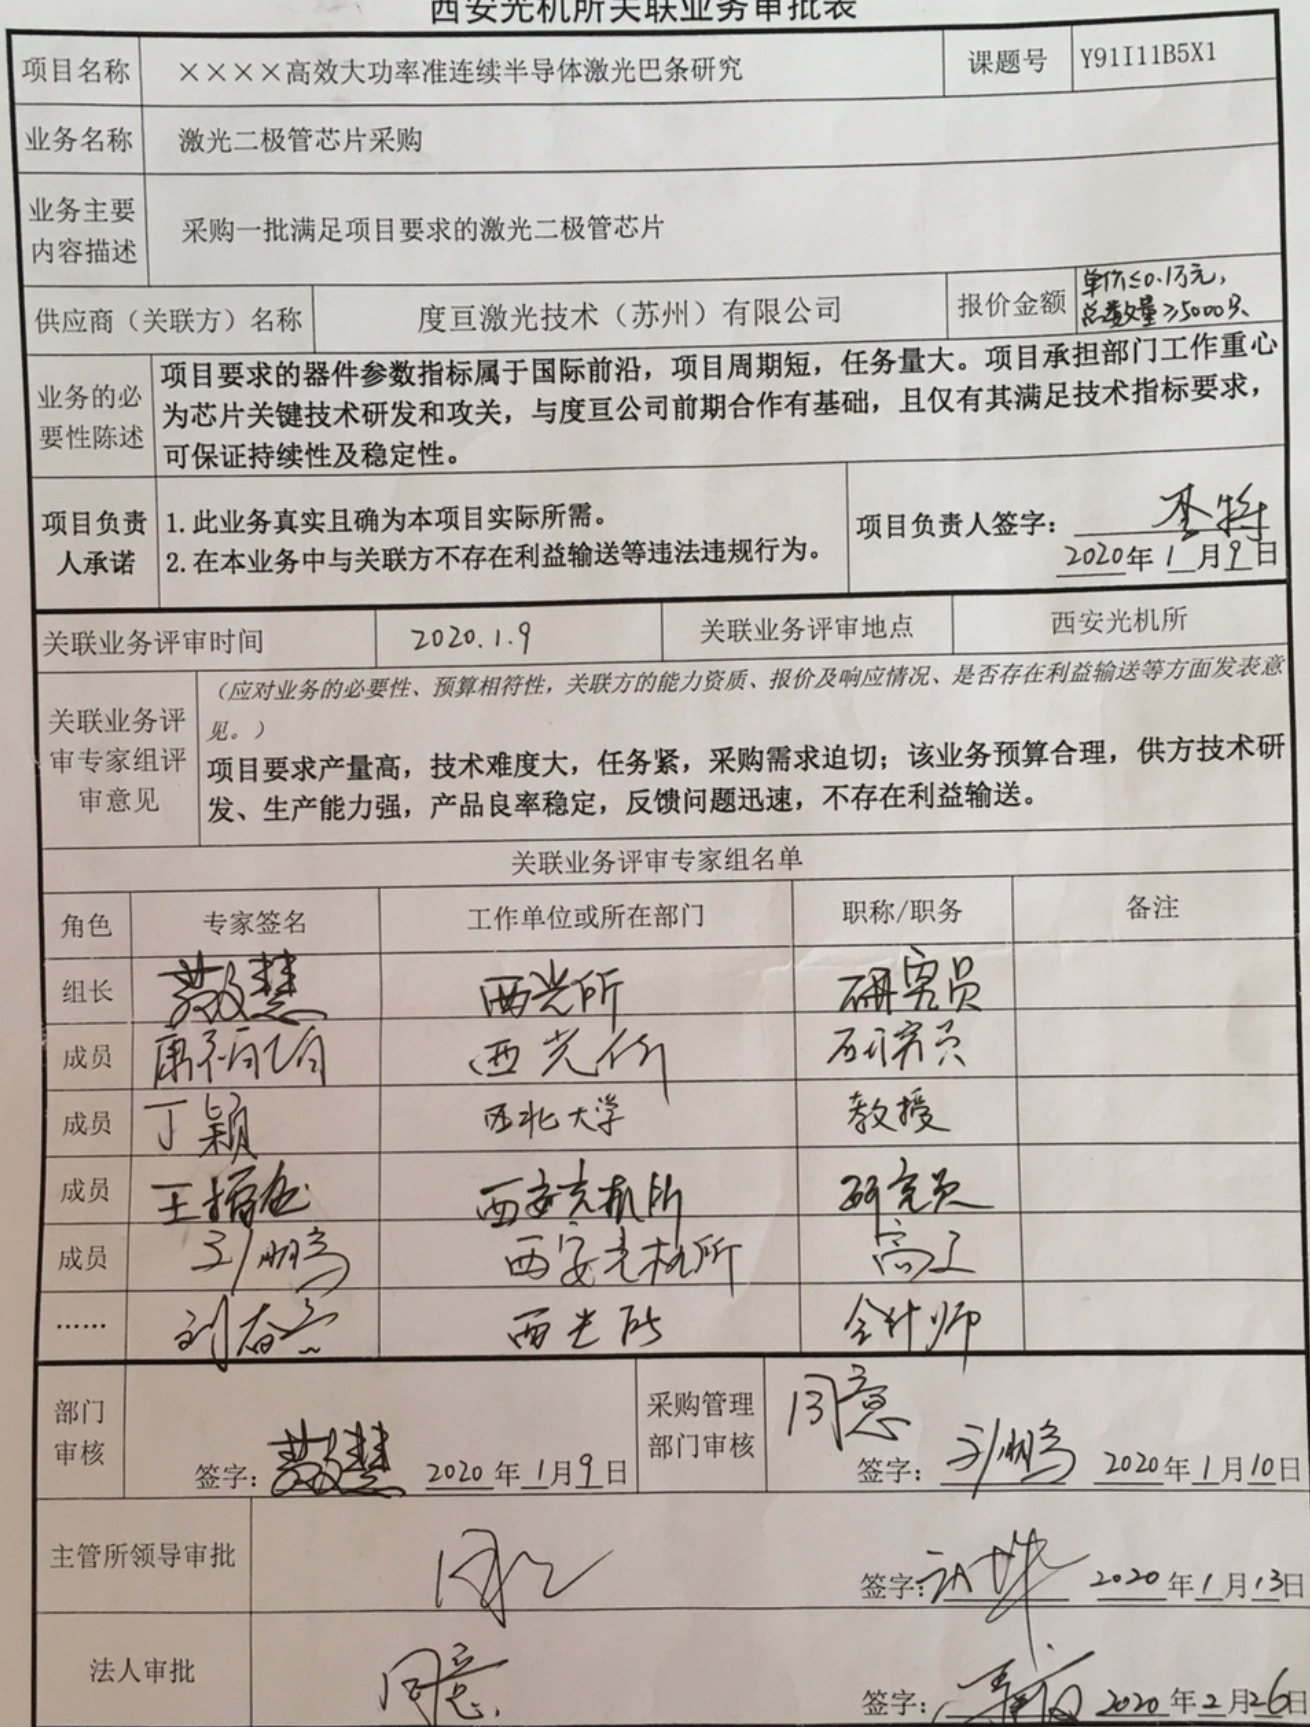 西安光机所关联业务审批表
项目名称 ××××高效大功率准连续半导体激光巴条研究 课题号 Y91I11B5X1
业务名称 激光二极管芯片采购
业务主要
内容描述
采购一批满足项目要求的激光二极管芯片
供应商（关联方）名称 度亘激光技术（苏州）有限公司 报价金额
单价≤0.1万元，
总数量≥5000只、
业务的必
要性陈述
项目要求的器件参数指标属于国际前沿，项目周期短，任务量大。项目承担部门工作重心
为芯片关键技术研发和攻关，与度亘公司前期合作有基础，且仅有其满足技术指标要求，
可保证持续性及稳定性。
项目负责
人承诺
1. 此业务真实且确为本项目实际所需。
2. 在本业务中与关联方不存在利益输送等违法违规行为。
项目负责人签字：
2020年1月9日
关联业务评审时间 2020.1.9 关联业务评审地点 西安光机所
关联业务评
审专家组评
审意见
（应对业务的必要性、预算相符性，关联方的能力资质、报价及响应情况、是否存在利益输送等方面发表意
见。）
项目要求产量高，技术难度大，任务紧，采购需求迫切；该业务预算合理，供方技术研
发、生产能力强，产品良率稳定，反馈问题迅速，不存在利益输送。
关联业务评审专家组名单
角色 专家签名 工作单位或所在部门 职称/职务 备注
组长 西光所 研究员
成员 西光所 研究员
成员 丁颖 西北大学 教授
成员 西安光机所 研究员
成员 刘鹏 西安光机所 高工
…… 刘 西光所 会计师
部门
审核
签字： 2020年1月9日
采购管理
部门审核
同意
签字：刘鹏 2020年1月10日
主管所领导审批 同意 签字： 2020年1月13日
法人审批 同意. 签字： 2020年2月26日